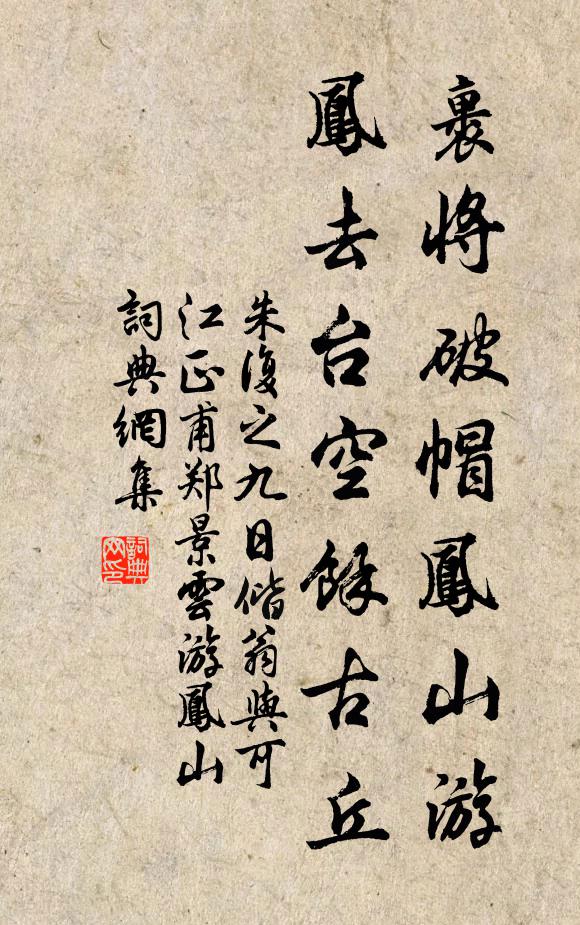 裹將破帽鳳山游
鳳去台空餘古丘
朱復之九日偕翁與可
江正甫郑景雲游鳳山
詞典網集
詞典
网印